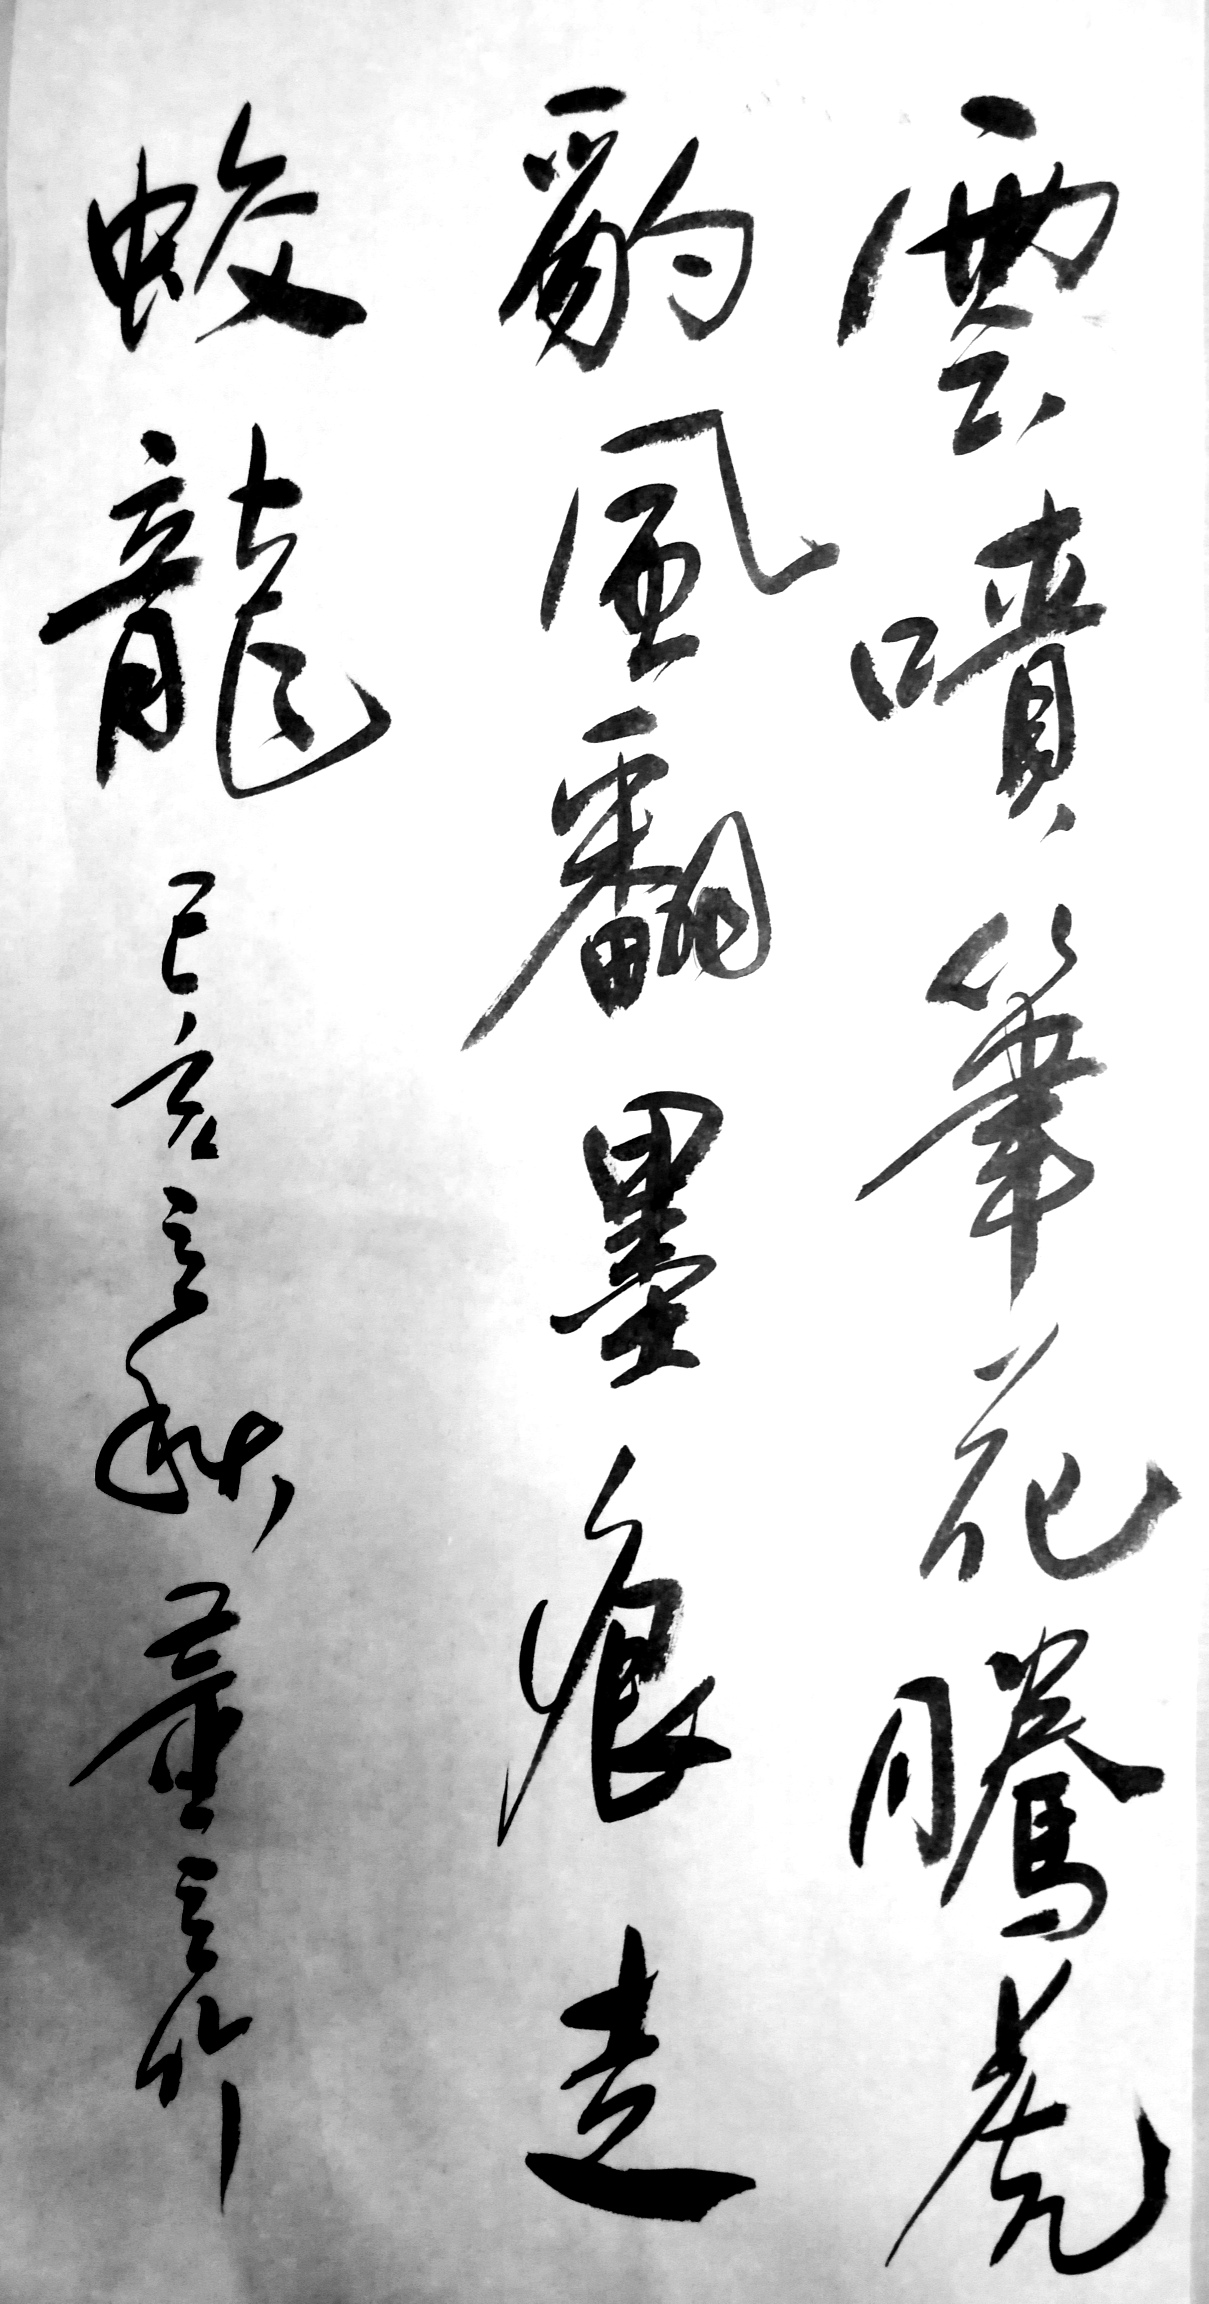 雲噴筆花騰虎
豹風翻墨痕走
蛟龍己亥之秋董之竹